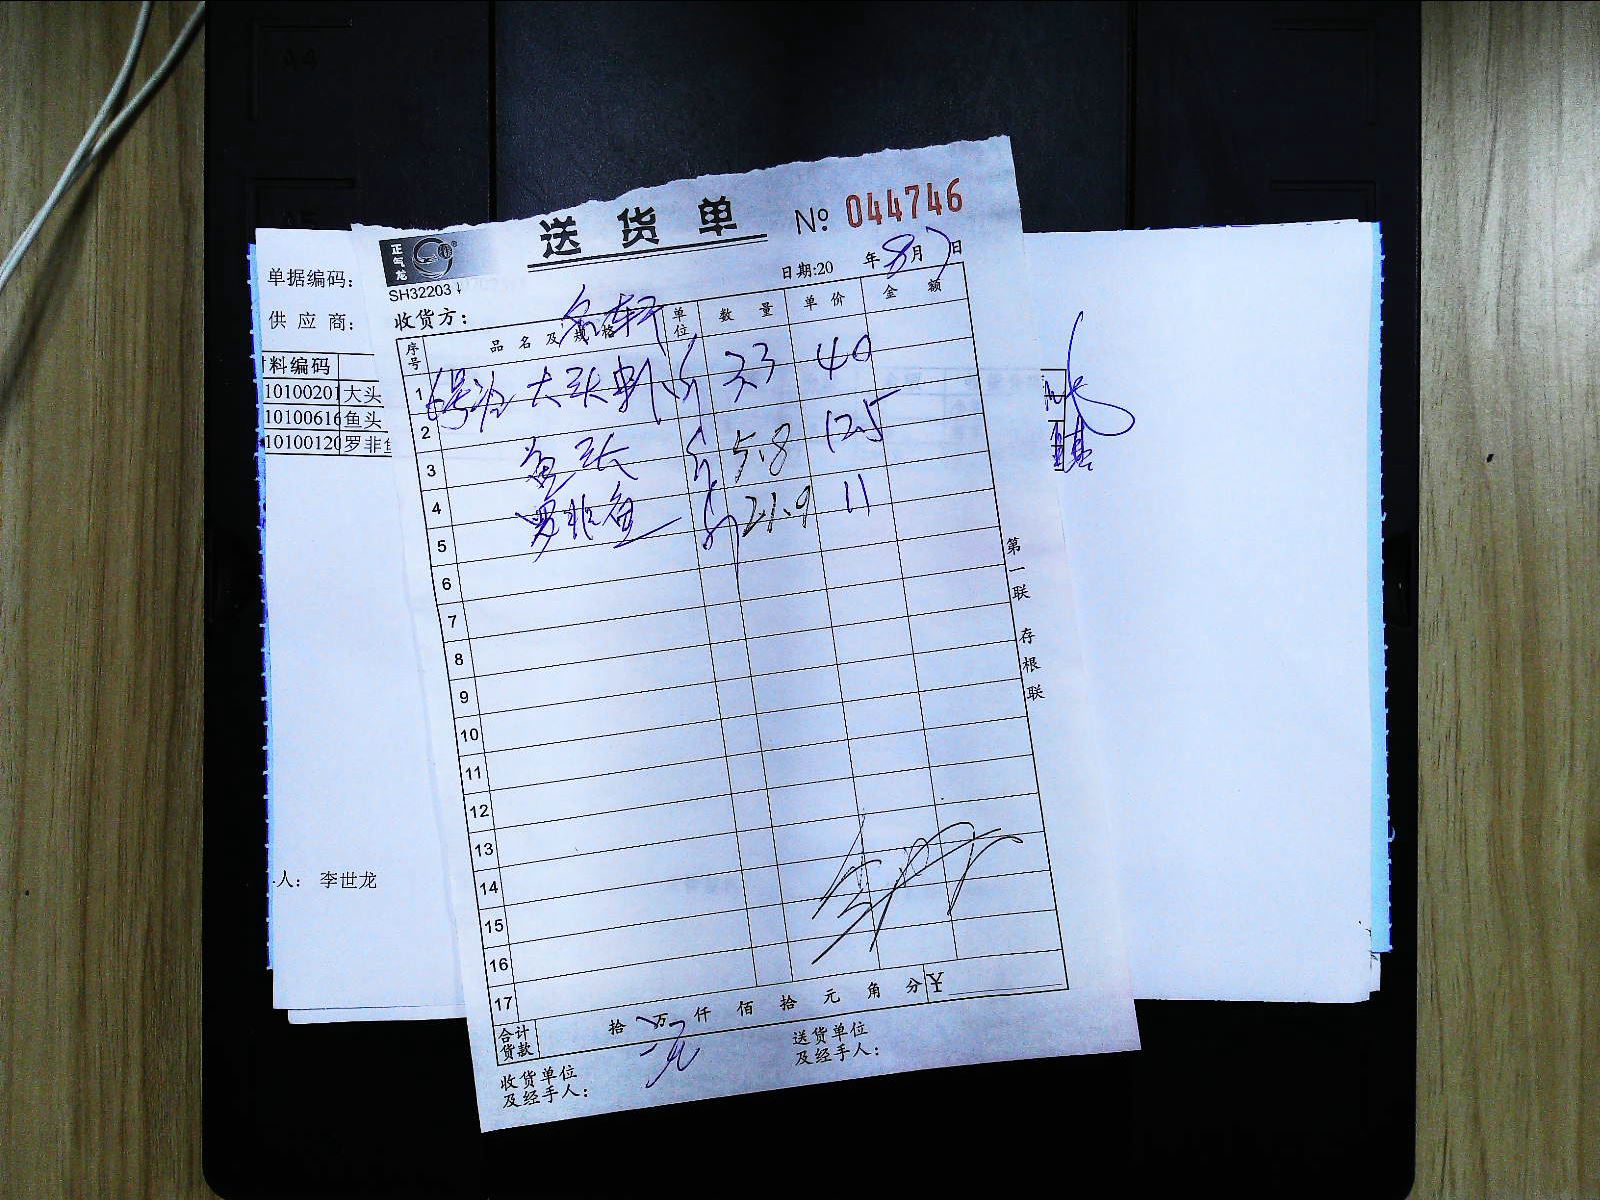 送货单 № 044746
正气龙
SH32203
日期:20 年8月7日
收货方: 名轩
序号 品名及规格 单位 数量 单价 金额
1 大头 斤 3.3 40
2
3 鱼头 斤 5.8 12.5
4 罗非鱼 斤 21.9 11
5
6
7
8
9
10
11
12
13
14
15
16
17
合计货款 拾 万 仟 佰 拾 元 角 分 ¥
收货单位及经手人:
送货单位及经手人:
第一联 存根联
单据编码:
供应商:
料编码
10100201 大头
10100616 鱼头
10100120 罗非鱼
人: 李世龙